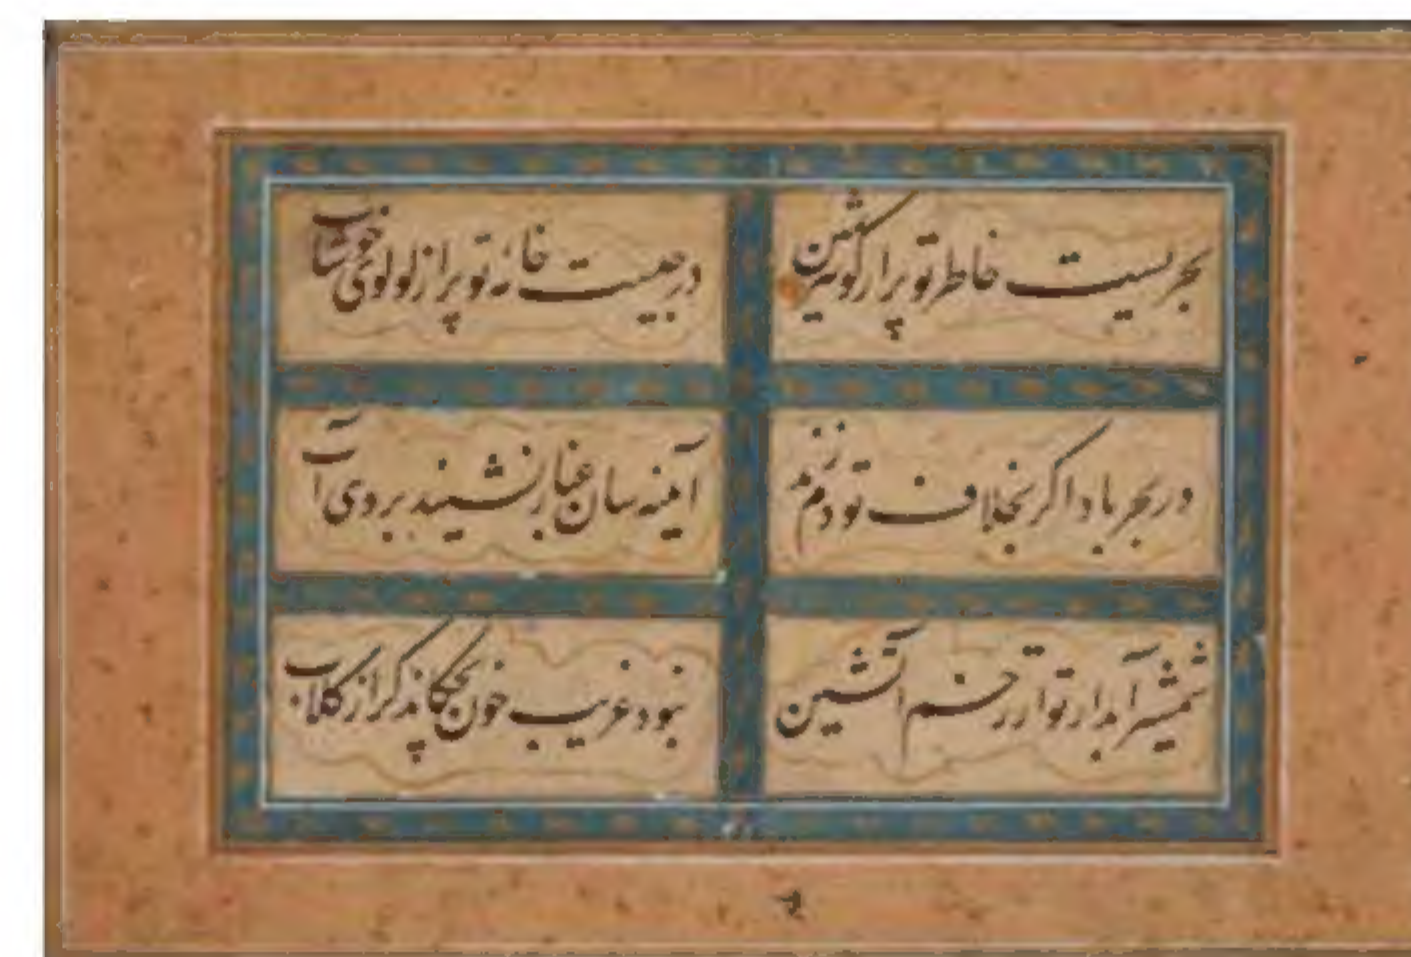 بحریست خاطر تو پر از گوهر ثمین
درجیست خانهٔ تو پر از لولوی خوشاب
در بحر باد اگر بخلاف تو دم زند
آیینه سان غبار نشیند بروی آب
شمشیر آبدار تو از زخم آتشین
نبود غریب خون بچکاند گر از کلاب